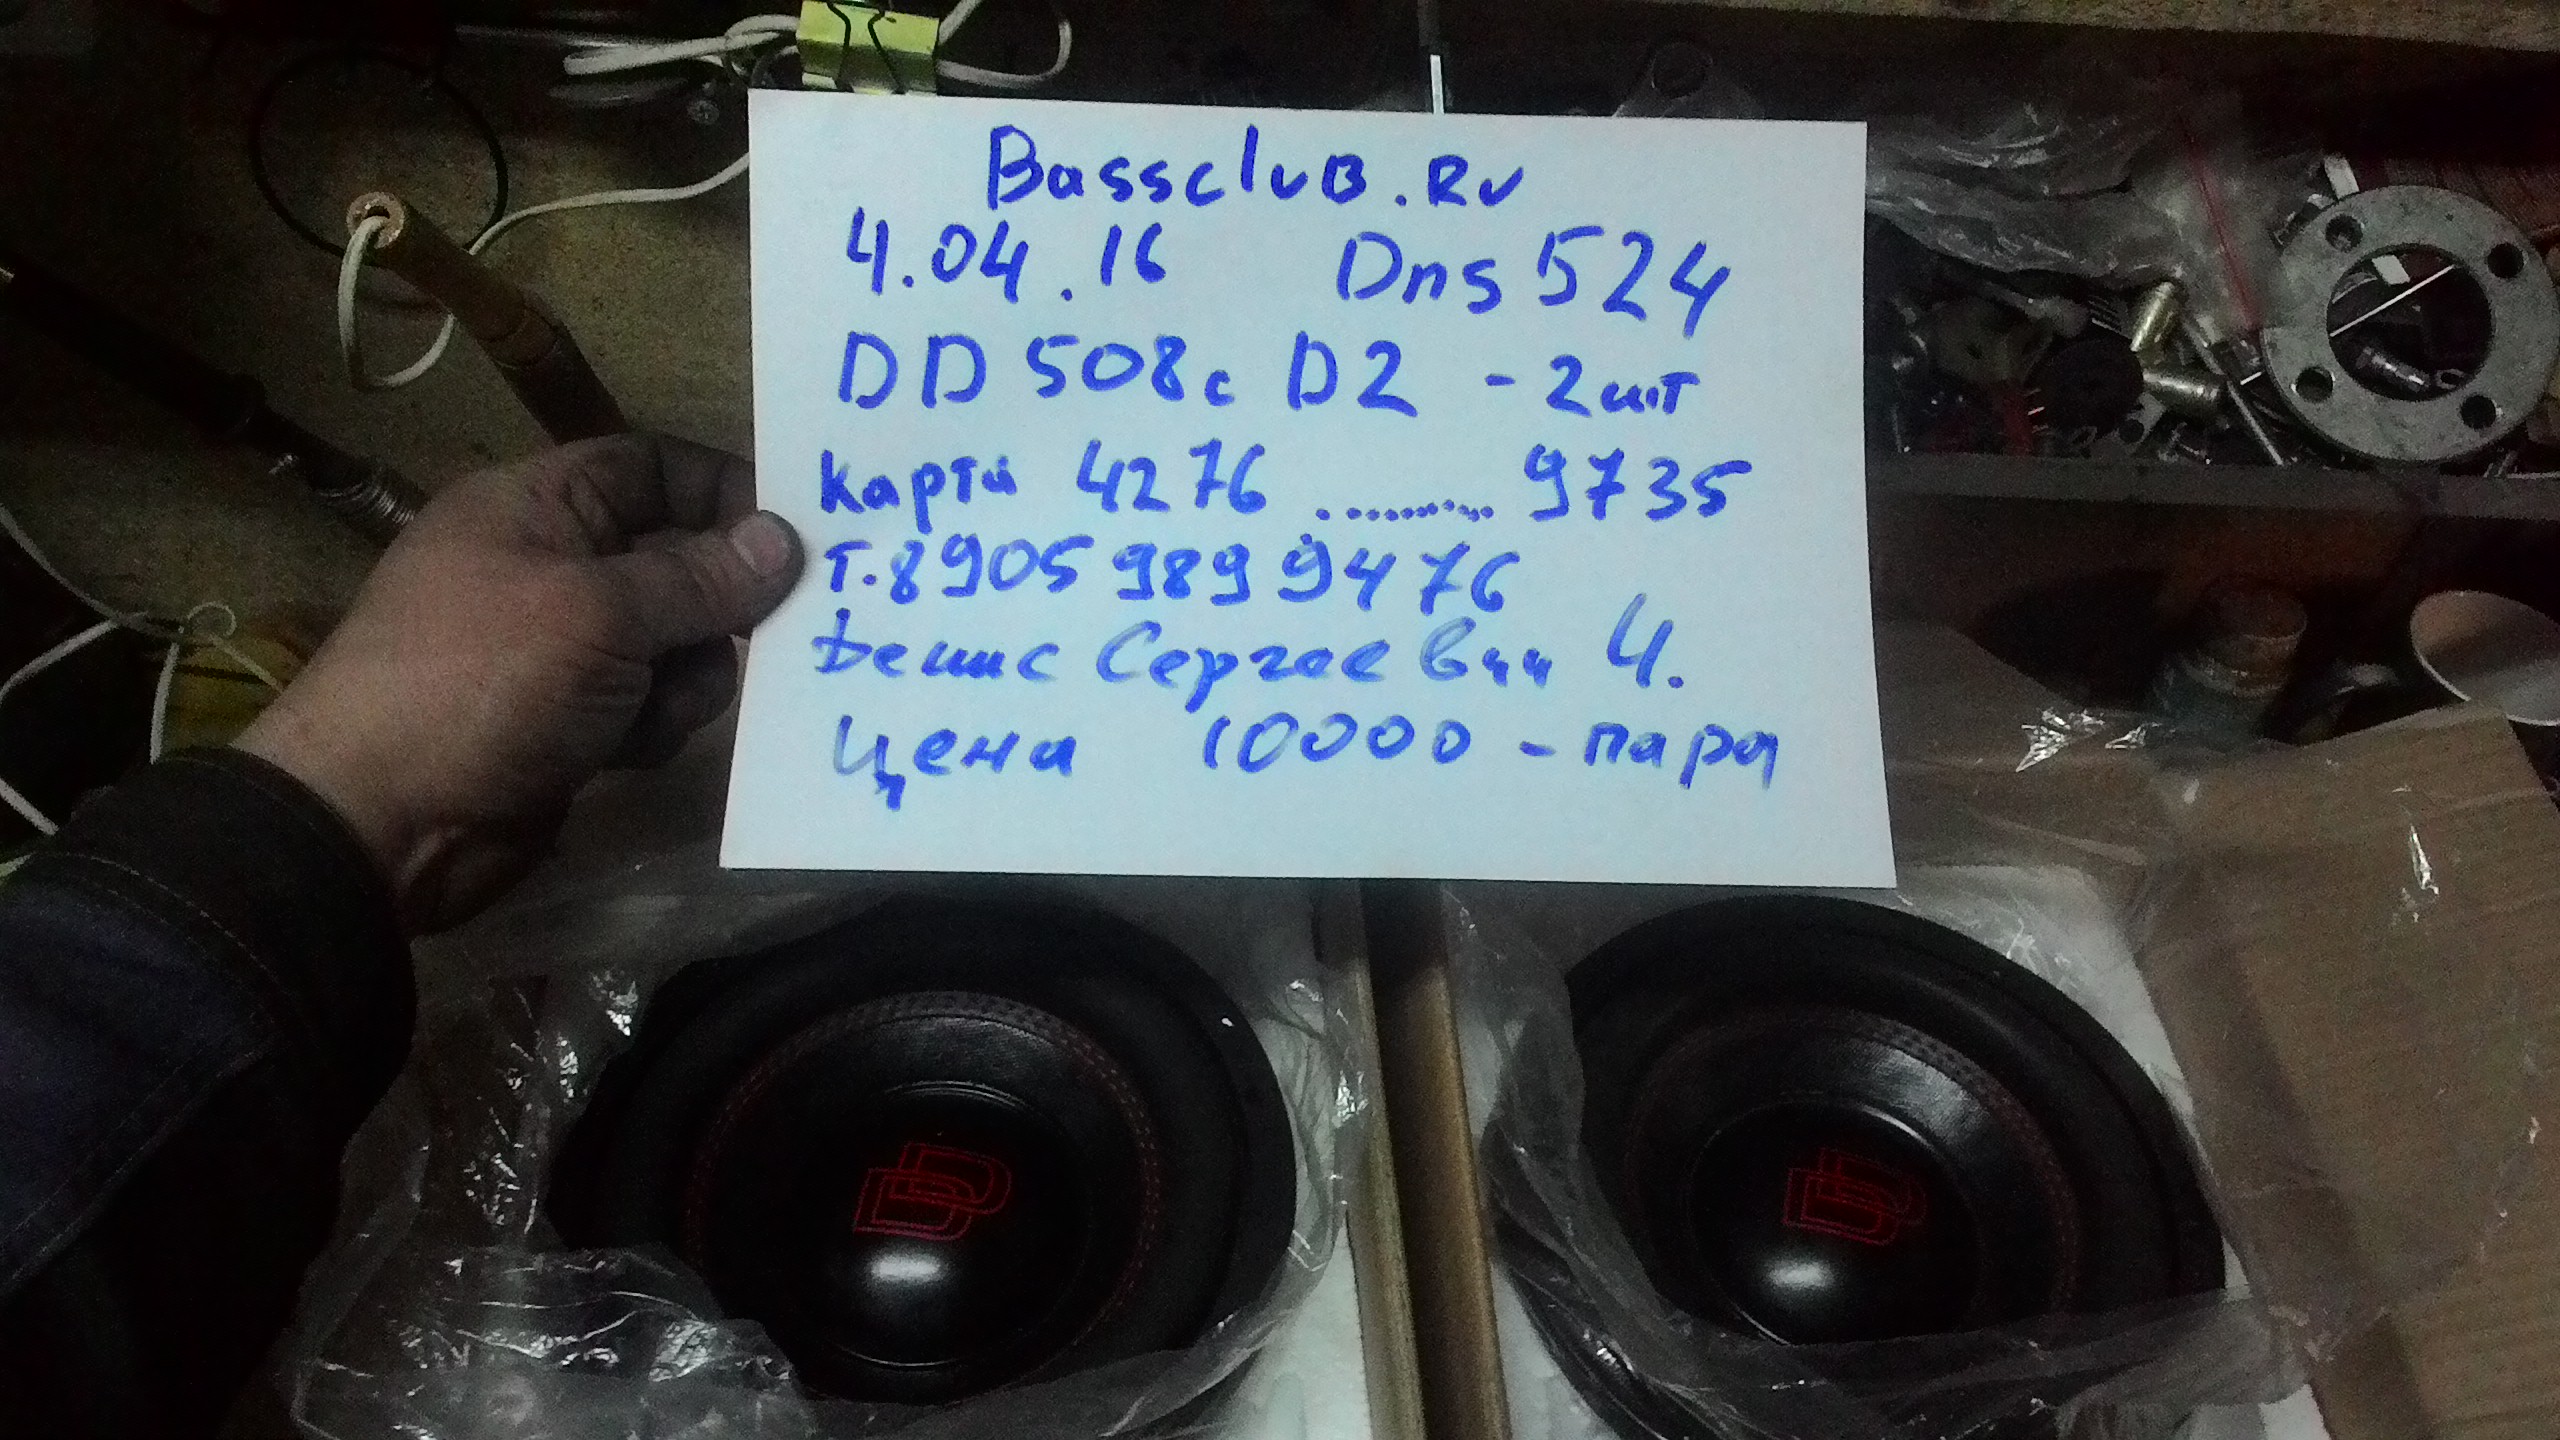 BasscluB.Ru
4.04.16 Dns524
DD 508c D2 - 2шт
Карта 4276 .......... 9735
т.8905 989 9476
Денис Сергеевич Ч.
Цена 10000 - пара
DD
DD